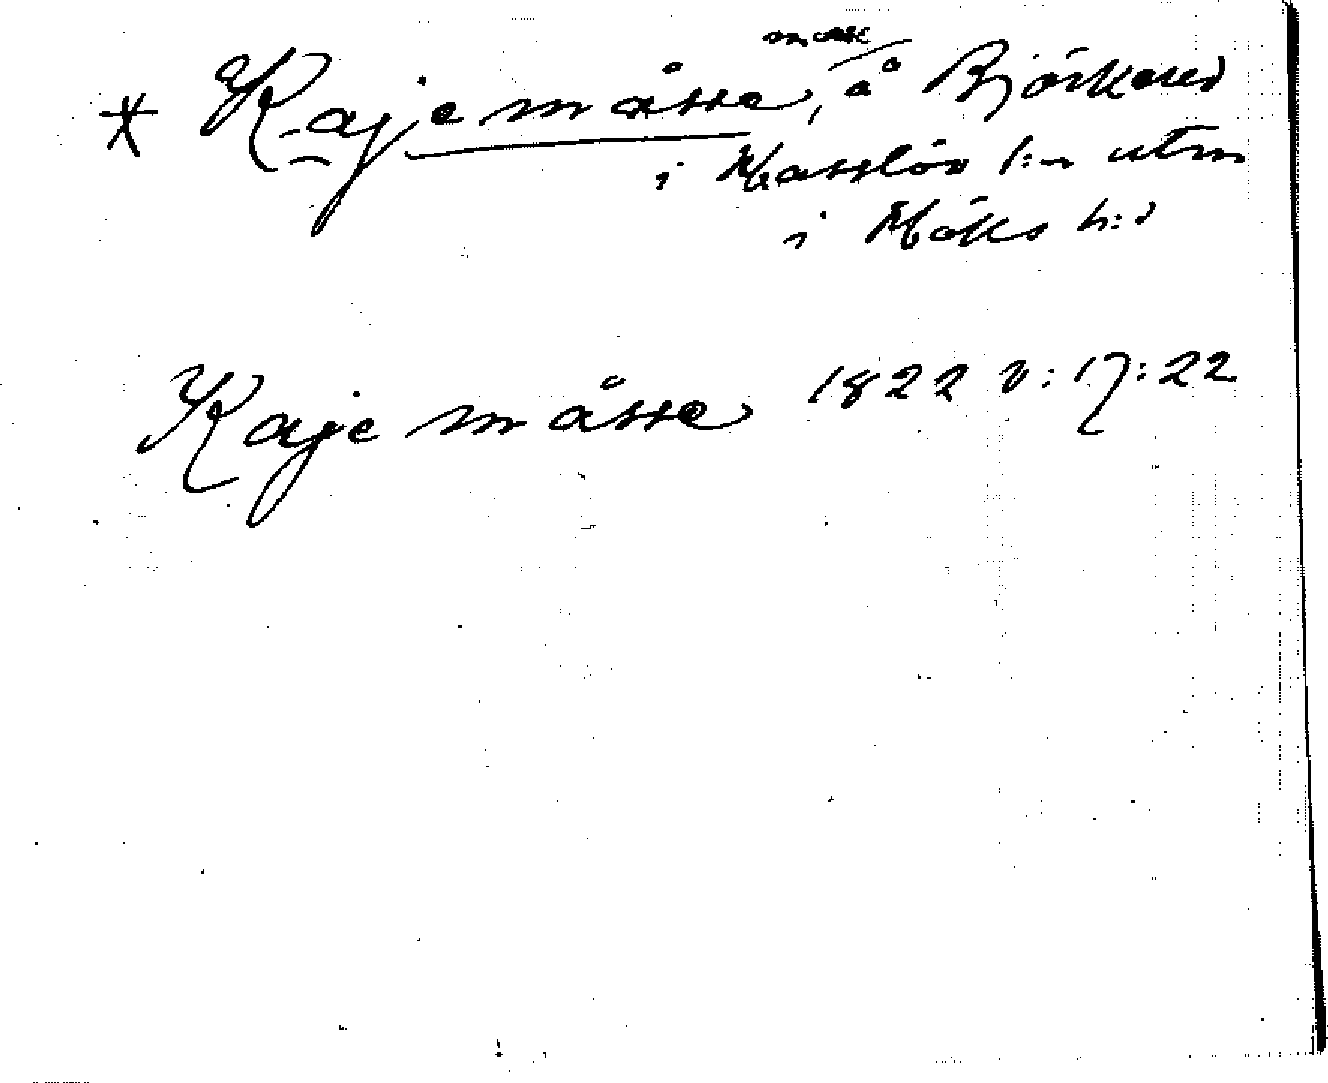 * Kajemåsse, mark å Björkered
i Hasslöv s:n utm
i Höks h:d
Kaje måsse 1822 v: 17: 22